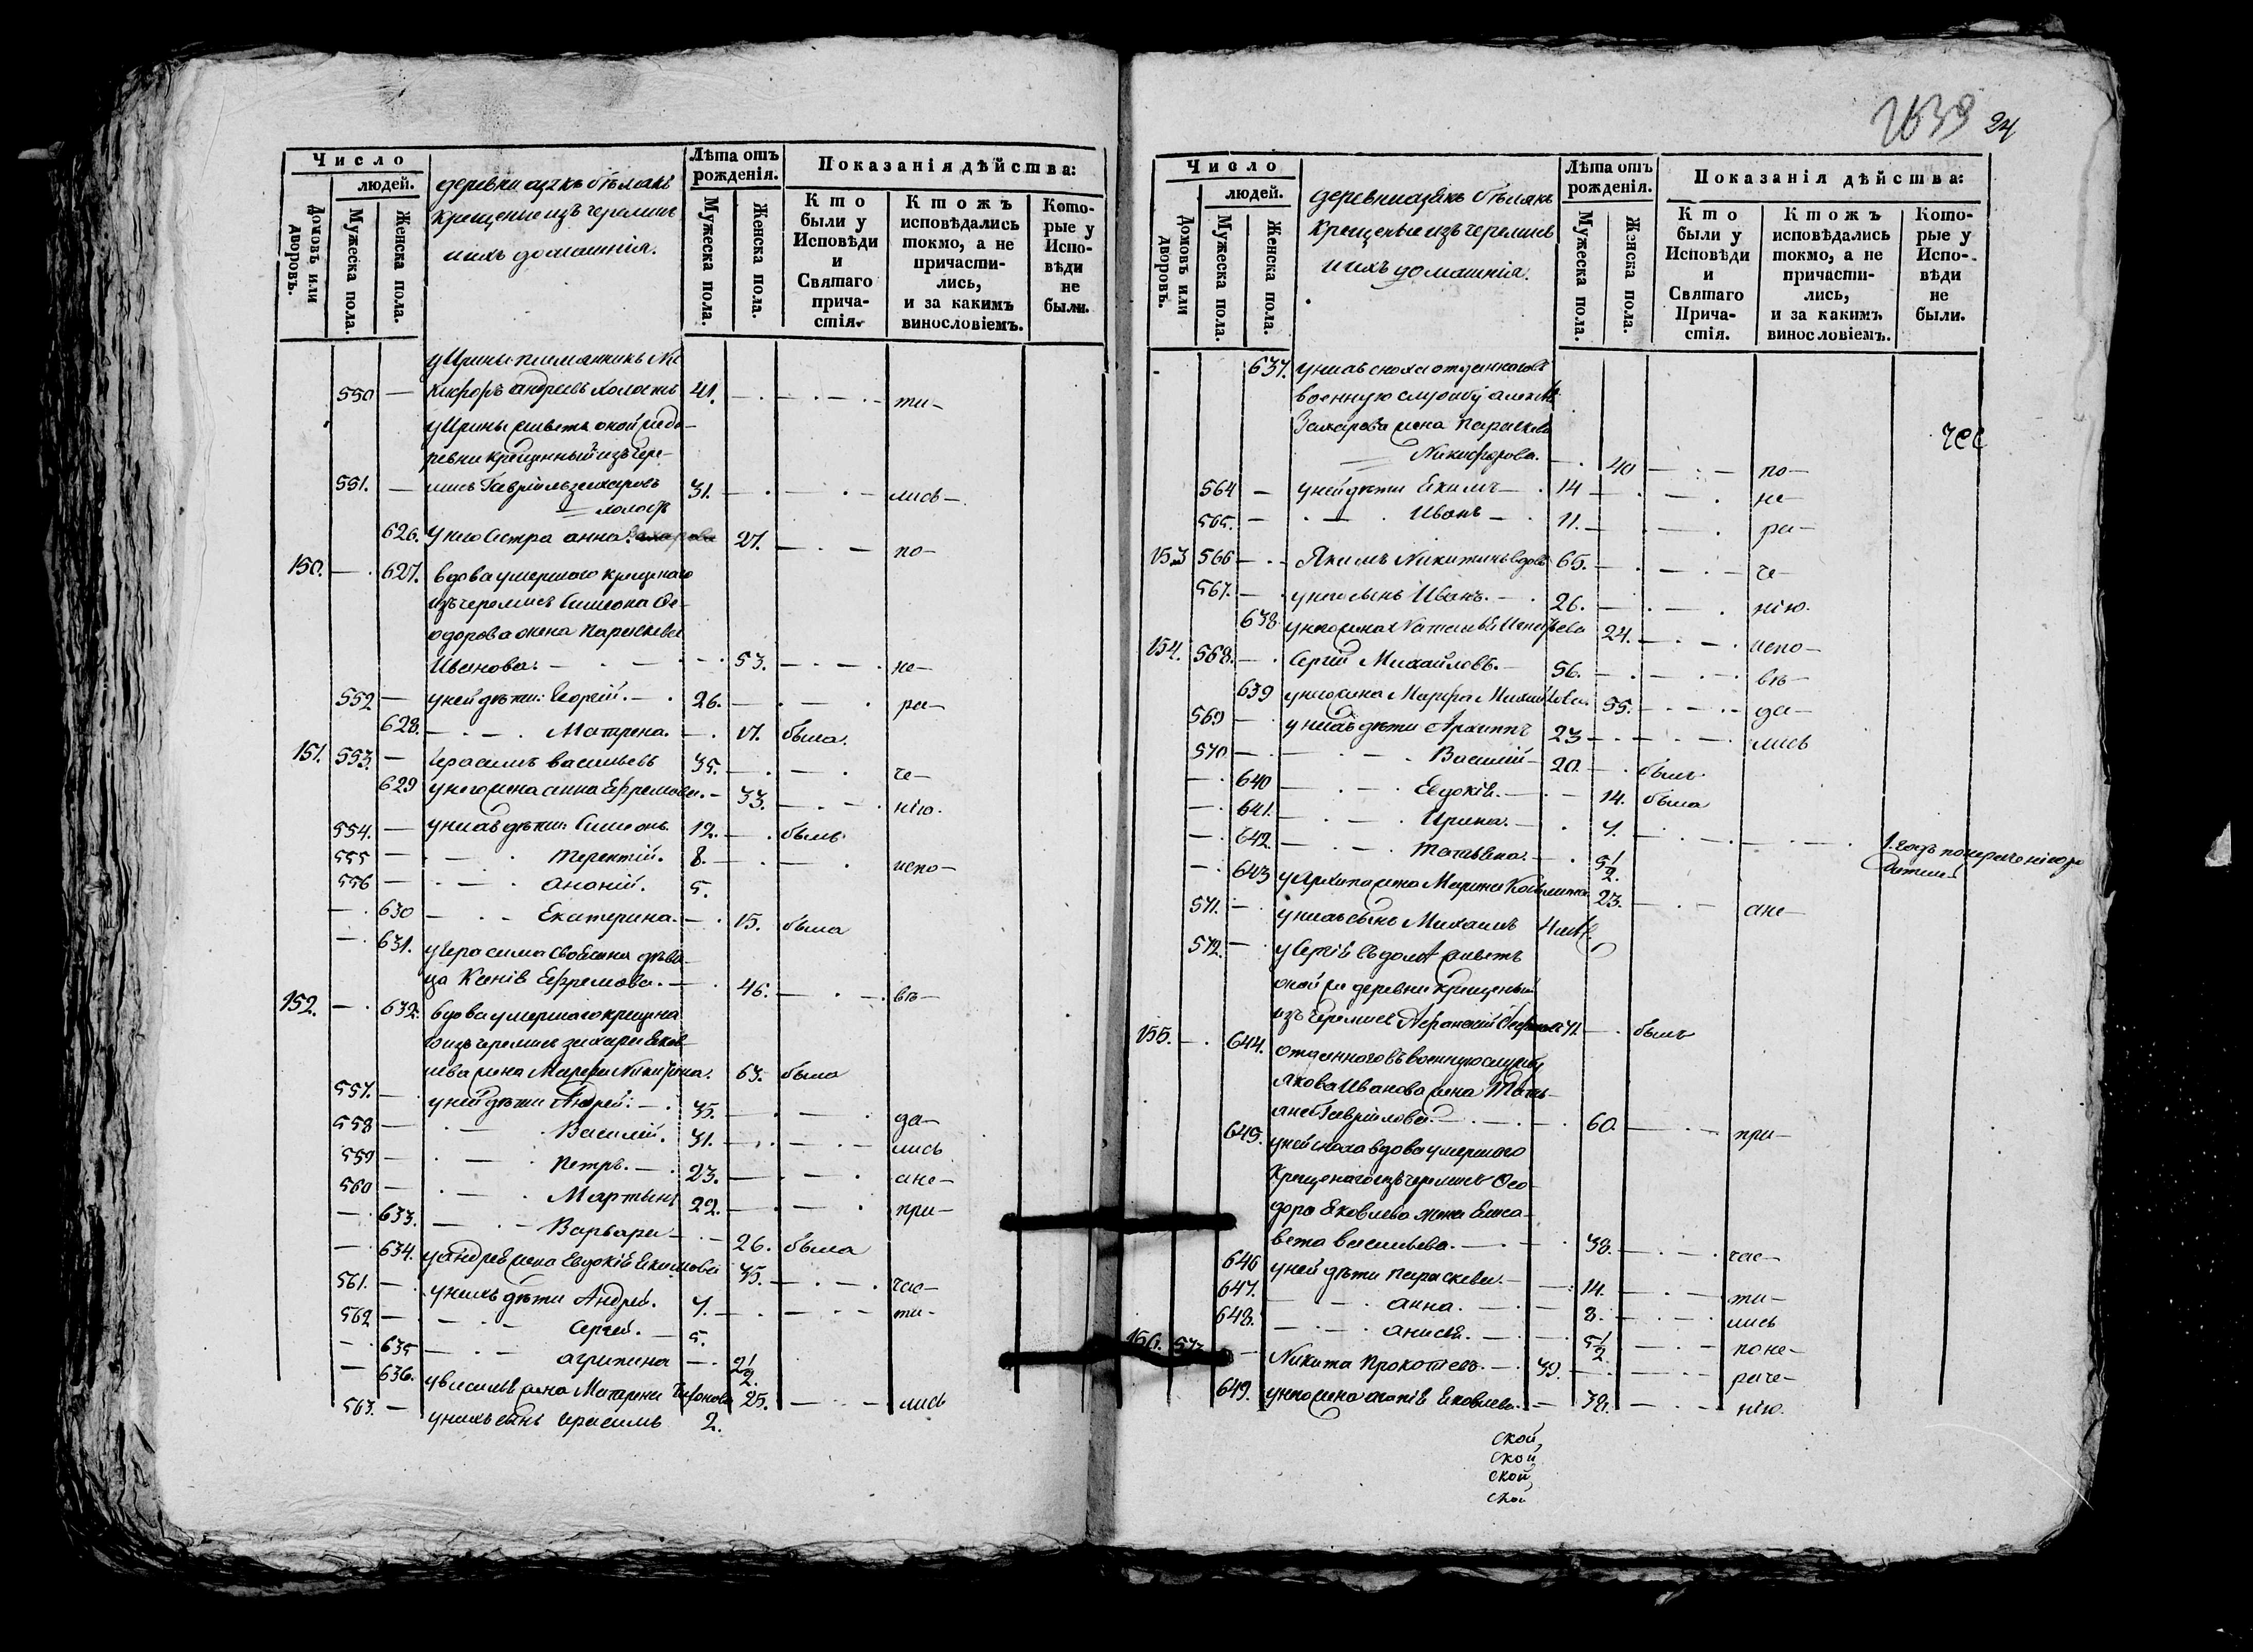 Число
людей.
Домовъ или дворовъ.
Мужеска пола.
Женска пола.
деревни
крещеные изъ черемисъ
и ихъ домашнія.
Лѣта отъ рожденія.
Мужеска пола.
Женска пола.
Показанія дѣйства:
Кто были у Исповѣди и Святаго причастія.
Ктожъ исповѣдались токмо, а не причастились, и за какимъ винословіемъ.
Которые у Исповѣди не были.
у Ирины племянникъ Ни-
550 — кифоръ Андреевъ холостъ 41. — ти-
у Ирины живетъ оной же де-
ревни крещенный изъ чере-
551. — мисъ Гаврiилъ Захаровъ 31. — лись-
холостъ
626. у него сестра Анна 27. — по-
150. — 627. вдова умершаго крещенаго
изъ черемисъ Симеона Ѳе-
одорова жена Параскева
Иванова. — 53. — не-
552 — у ней дѣти: Георгій. — 26. — ра-
628. — Матрена. — 17. была.
151. 553. — Герасимъ Васильевъ 35. — че-
629 у него жена Анна Ефремова. — 33. — нію.
554. — у нихъ дѣти: Симеонъ. 12. — былъ
555 — Терентій. 8. — испо-
556 — Ананій. 5.
— 630 — Екатерина. — 15. была
— 631. у Герасима своячина дѣви-
ца Ксенія Ефремова. — 46. — вѣ-
152. — 632. вдова умершаго крещена
го изъ черемисъ Захара Яков-
лева жена Марѳа Никитина. 63. была
557. — у ней дѣти Андрей. — 35. — да-
558 — Василій. 31. — лись
559 — Петръ. — 23. — ане-
560 — Мартынъ 22. — при-
— 633. — Варвара — 26. была
— 634. у Андрея жена Евдокія Екимова 35. — час-
561. — у нихъ дѣти Андрей. 7. — ти-
562 — Сергей. — 5.
— 635 — Агрипина — 2 1/2.
— 636. у Василья жена Матрена 25. — лись
563. — у нихъ сынъ Герасимъ 2.
2639 24
Число
людей.
Домовъ или дворовъ.
Мужеска пола.
Женска пола.
деревни
крещеные изъ черемисъ
и ихъ домашнія.
Лѣта отъ рожденія.
Мужеска пола.
Женска пола.
Показанія дѣйства:
Кто были у Исповѣди и Святаго Причастія.
Ктожъ исповѣдались токмо, а не причастились, и за какимъ винословіемъ.
Которые у Исповѣди не были.
637. у нихъ сноха отданнаго въ
военную службу
Захарова жена Параскева
Никифорова. — 40 — по-
564 — у ней дѣти Екимъ — 14 — не-
565. — Иванъ — 11. — ра-
153 566 — Якимъ Никитинъ вдовъ 65. — че-
567. — у него сынъ Иванъ. — 26. — нію.
638 у него жена Наталья 24. — испо-
154. 568. — Сергій Михайловъ. — 56. — вѣ-
639 у него жена Марѳа Михайлова. 55. — да-
569 — у нихъ дѣти Архиппъ 23 — лись
570 — Василій — 20. — былъ
— 640 — Евдокія. — 14. была
— 641. — Ирина. — 7.
— 642. — Татьяна. — 5 1/2.
— 643 у Архипа жена Марина 23. — ане-
571. — у нихъ сынъ Михаилъ
572. — у Сергія въ домѣ живетъ
оной же деревни крещеный
изъ черемисъ 71 — былъ
155. — 644. отданнаго въ военную службу
Якова Иванова жена Тать-
яна Гаврилова. — 60. — при-
645. у ней сноха вдова умершаго
крещенаго изъ черемисъ Ѳео-
дора Яковлева жена Елиса-
вета Васильева. — 38. — час-
646 у ней дѣти Параскева. — 14. — ти-
647. — Анна. — 8. — лись
648. — Анисья. — 5 1/2 — поне-
156. 573 — Никита Прокопьевъ. — 39. — раче-
649. у него жена Агапія Яковлева. — 38. — нію.
ской
ской
ской
ской